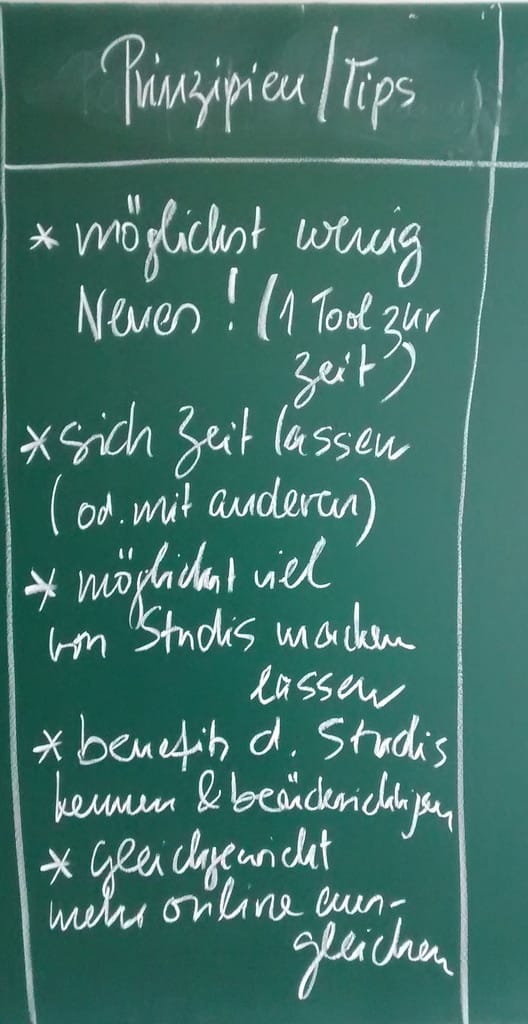 Prinzipien/Tips
* möglichst wenig
Neues! (1 Tool zur
Zeit)
* sich Zeit lassen
(od. mit anderen)
* möglichst viel
von Studis machen
lassen
* benefits d. Studis
kennen &
* Gleichgewicht
mehr online aus-
gleichen